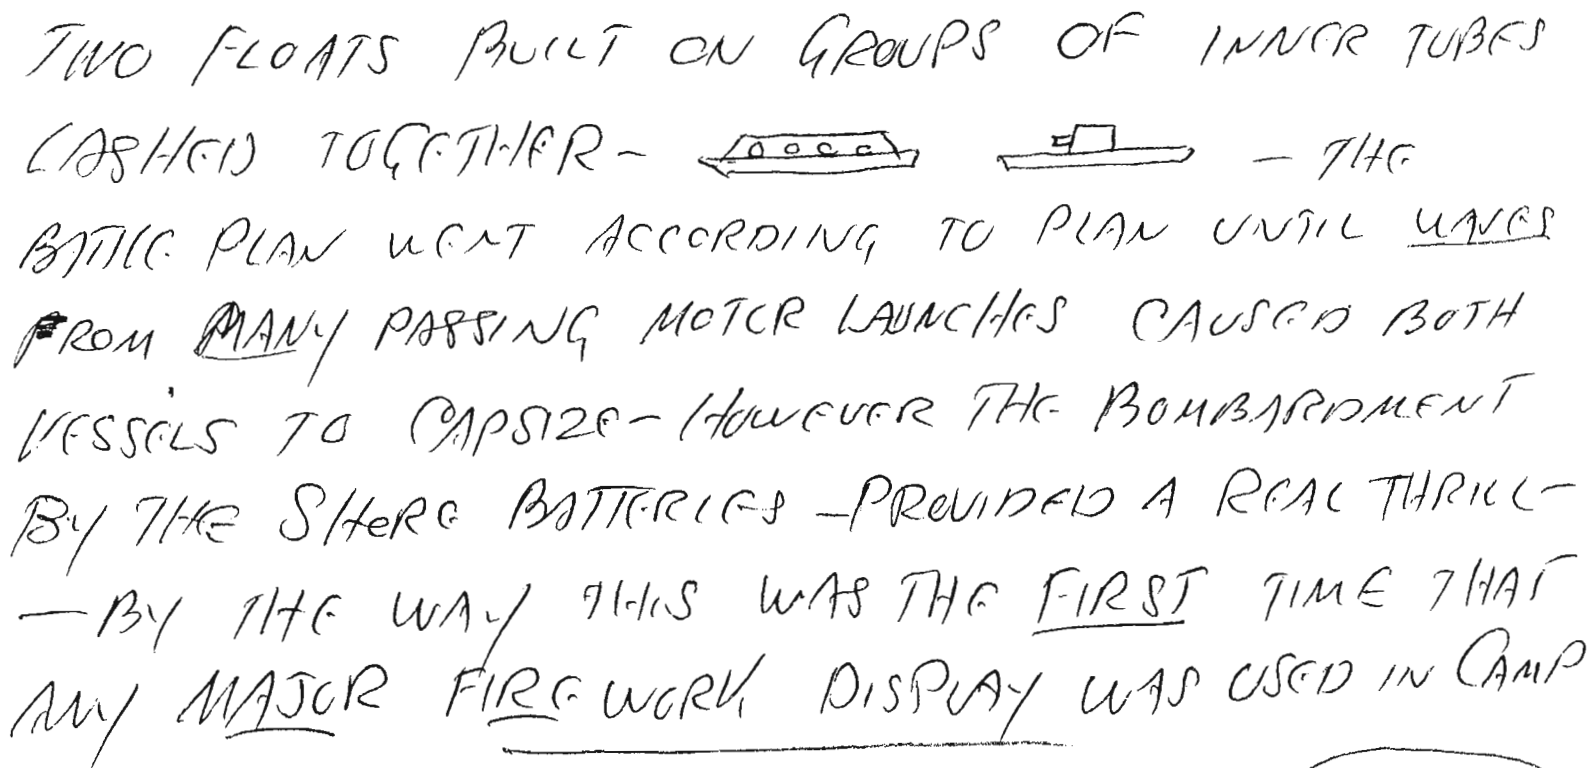 TWO FLOATS BUILT ON GROUPS OF INNER TUBES
LASHED TOGETHER - - THE
BATTLE PLAN WENT ACCORDING TO PLAN UNTIL WAVES
FROM MANY PASSING MOTOR LAUNCHES CAUSED BOTH
VESSELS TO CAPSIZE - HOWEVER THE BOMBARDMENT
BY THE SHORE BATTERIES - PROVIDED A REAL THRILL -
- BY THE WAY THIS WAS THE FIRST TIME THAT
ANY MAJOR FIREWORK DISPLAY WAS USED IN CAMP